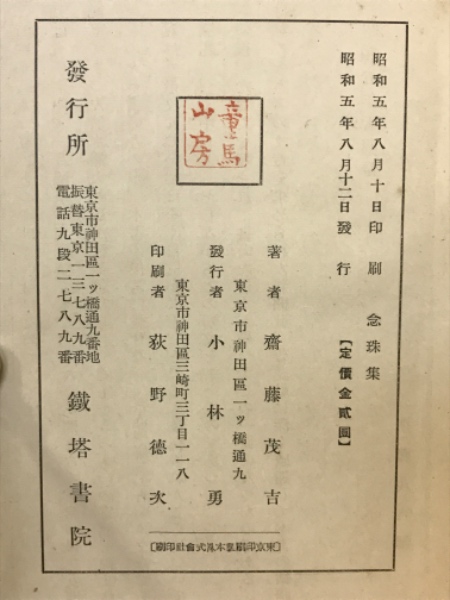 昭和五年八月十日印刷　念珠集
昭和五年八月十二日發行　【定價金貳圓】
童馬
山房
著者　齋藤茂吉
東京市神田區一ッ橋通九
發行者　小林勇
東京市神田區三崎町三丁目一一八
印刷者　荻野德次
發行所
東京市神田區一ッ橋通九番地
振替東京一二三七八九番
電話九段二七八九番
鐵塔書院